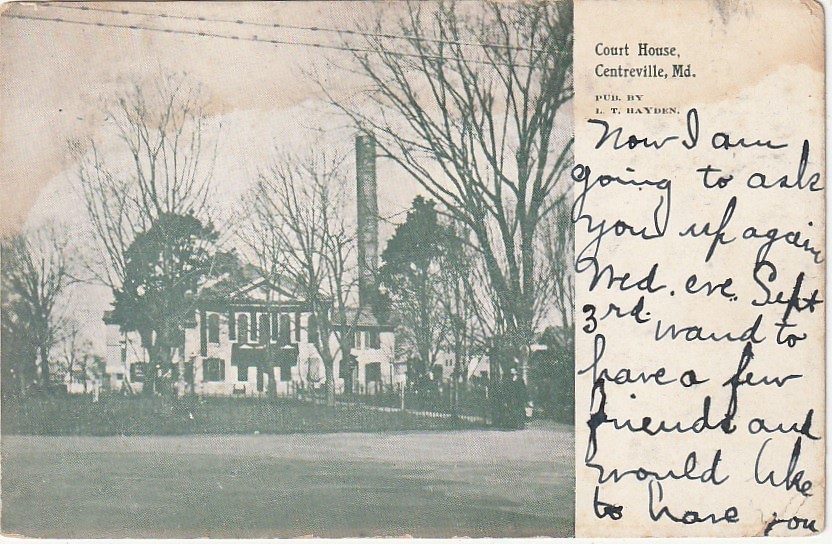 Court House,
Centreville, Md.
PUB. BY
L. T. HAYDEN.
Now I am
going to ask
you up again
Wed. eve. Sept
3rd. wand to
have a few
friends and
would like
to have you